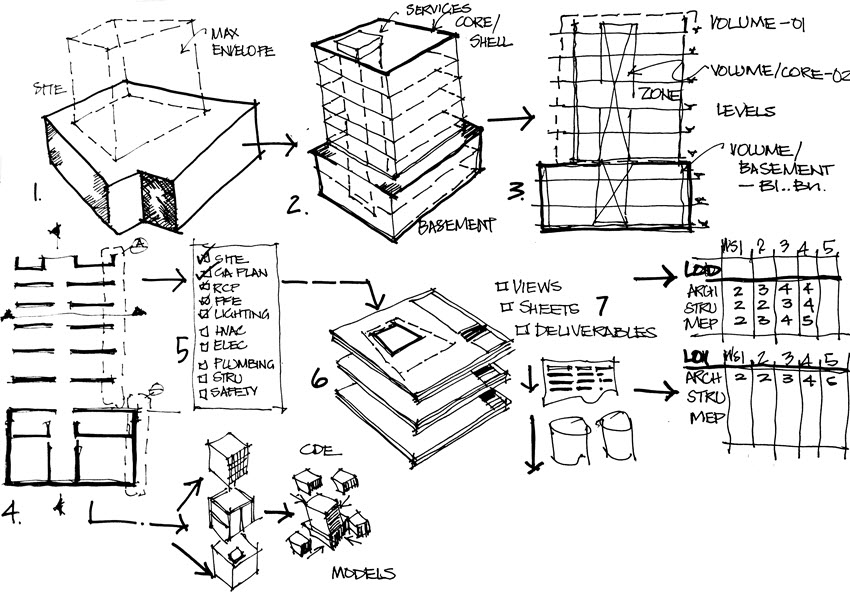 MAX
ENVELOPE
SITE
1.
SERVICES
CORE/
SHELL
BASEMENT
2.
VOLUME-01
VOLUME/CORE-02
ZONE
LEVELS
VOLUME/
BASEMENT
- B1..Bn.
3.
A
4.
5
SITE
GA PLAN
RCP
FFE
LIGHTING
HVAC
ELEC
PLUMBING
STRU
SAFETY
6
7
VIEWS
SHEETS
DELIVERABLES
WS1 2 3 4 5
LOD
ARCH 2 3 4 4
STRU 2 2 3 4
MEP 2 3 4 5
WS1 2 3 4 5
LOI
ARCH 2 2 3 4 5
STRU
MEP
CDE
MODELS